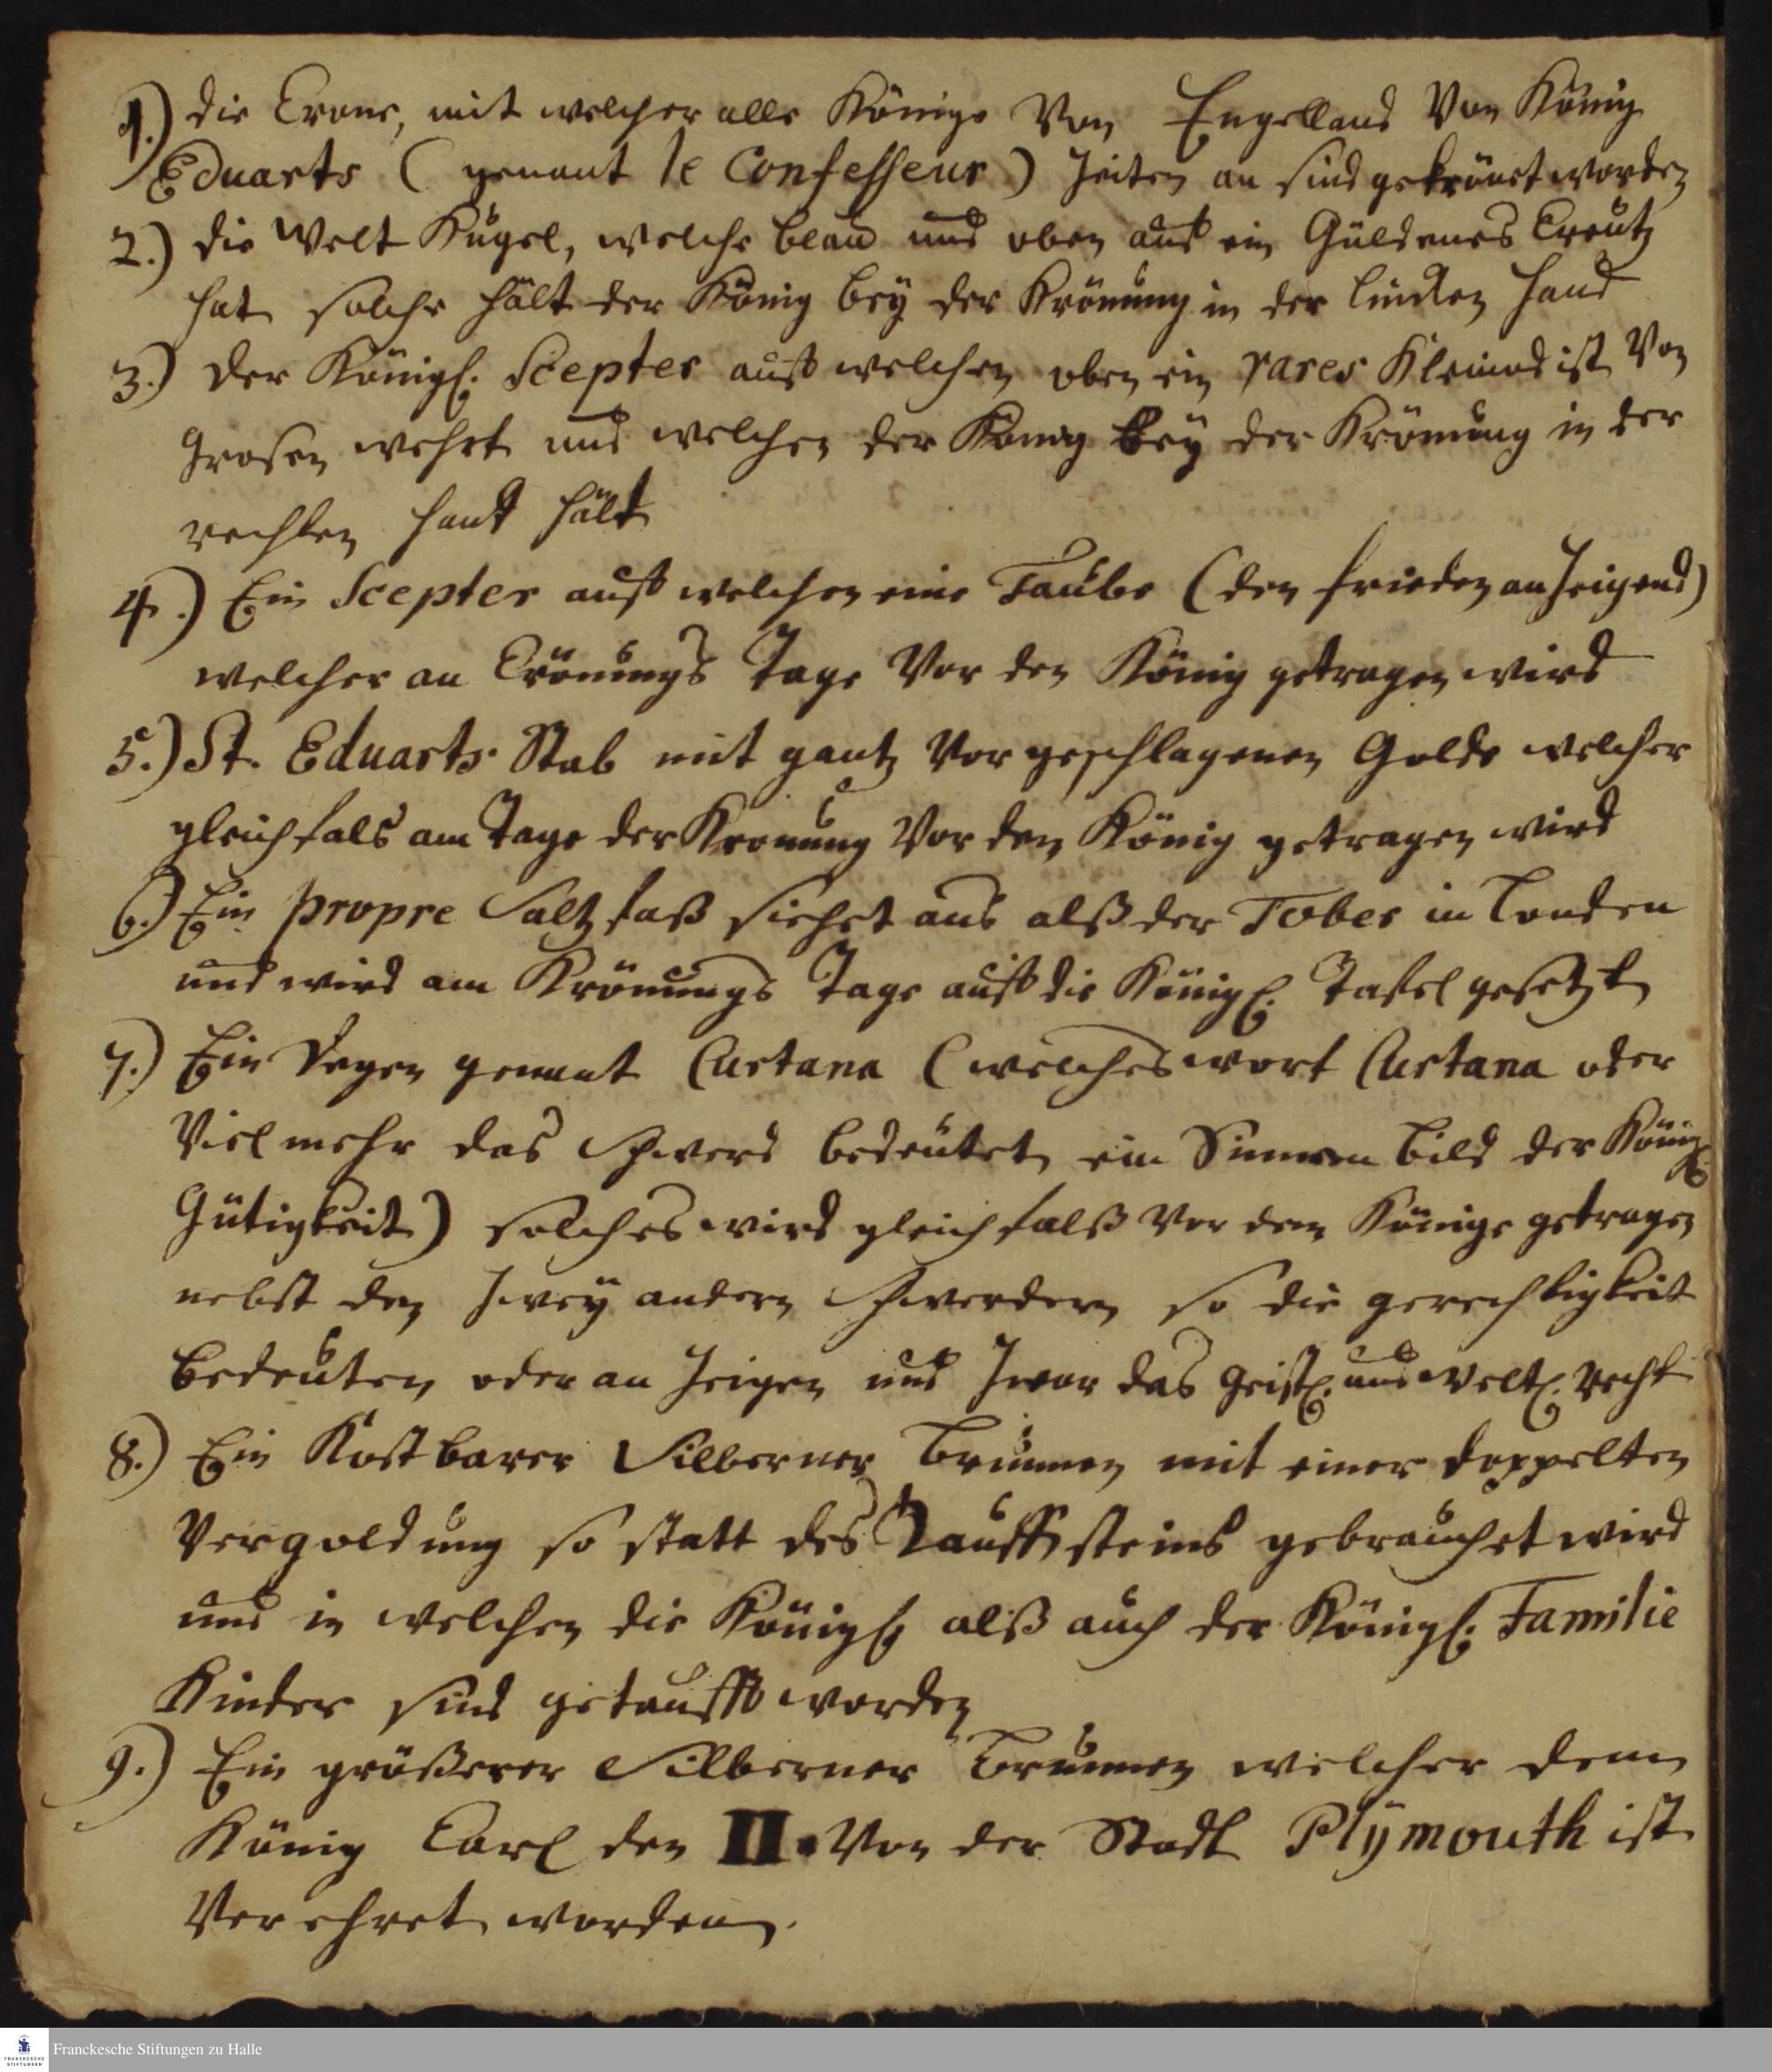 1.) die Crone, mit welcher alle Könige Von Engelland Von König
Eduarts (genant le Confesseur) Zeiten an sind gekrönet worden
2.) die Welt Kugel, welche blau und oben auf ein Güldenes Creutz
hat solche hält der König bey der Krönung in der lincken Hand
3.) der Königl. Scepter auff welchen oben ein rares Kleinod ist Von
Grosen wehrt und welchen der König bey der Krönung in der
rechten Hand hält
4.) Ein Scepter auff welchen eine Taube (den frieden anzeigend)
welcher an Crönungs Tage Vor den König getragen wird
5.) St. Eduarts Stab mit gantz Vor geschlagenen Golde welcher
gleichfals am Tage der Kronung Vor den König getragen wird
6.) Ein propre Saltz faß siehet aus alß der Tober in Londen
und wird am Krönungs Tage auff die Königl. Tafel gesetzt
7.) Ein Degen genant Curtana (welches wort Curtana oder
Viel mehr das Schwerd bedeutet ein Sinnen bild der Königl.
Gütigkeit) solches wird gleich falß Vor dem Könige getragen
nebst den Zwey andern Schwerdern so die gerechtigkeit
bedeuten oder an Zeigen und Zwar das Geistl. und Weltl. Recht
8.) Ein Kostbarer Silberner Brunnen mit einer doppelten
Vergoldung so statt des Tauffsteins gebrauchet wird
und in welchen die Königl. alß auch der Königl. Familie
Kinder sind getaufft worden
9.) Ein größerer Silberner Brunnen welcher dem
König Carl den II. Von der Stadt Plÿmouth ist
Verehret worden.
Franckesche Stiftungen zu Halle
FRANCKESCHE
STIFTUNGEN